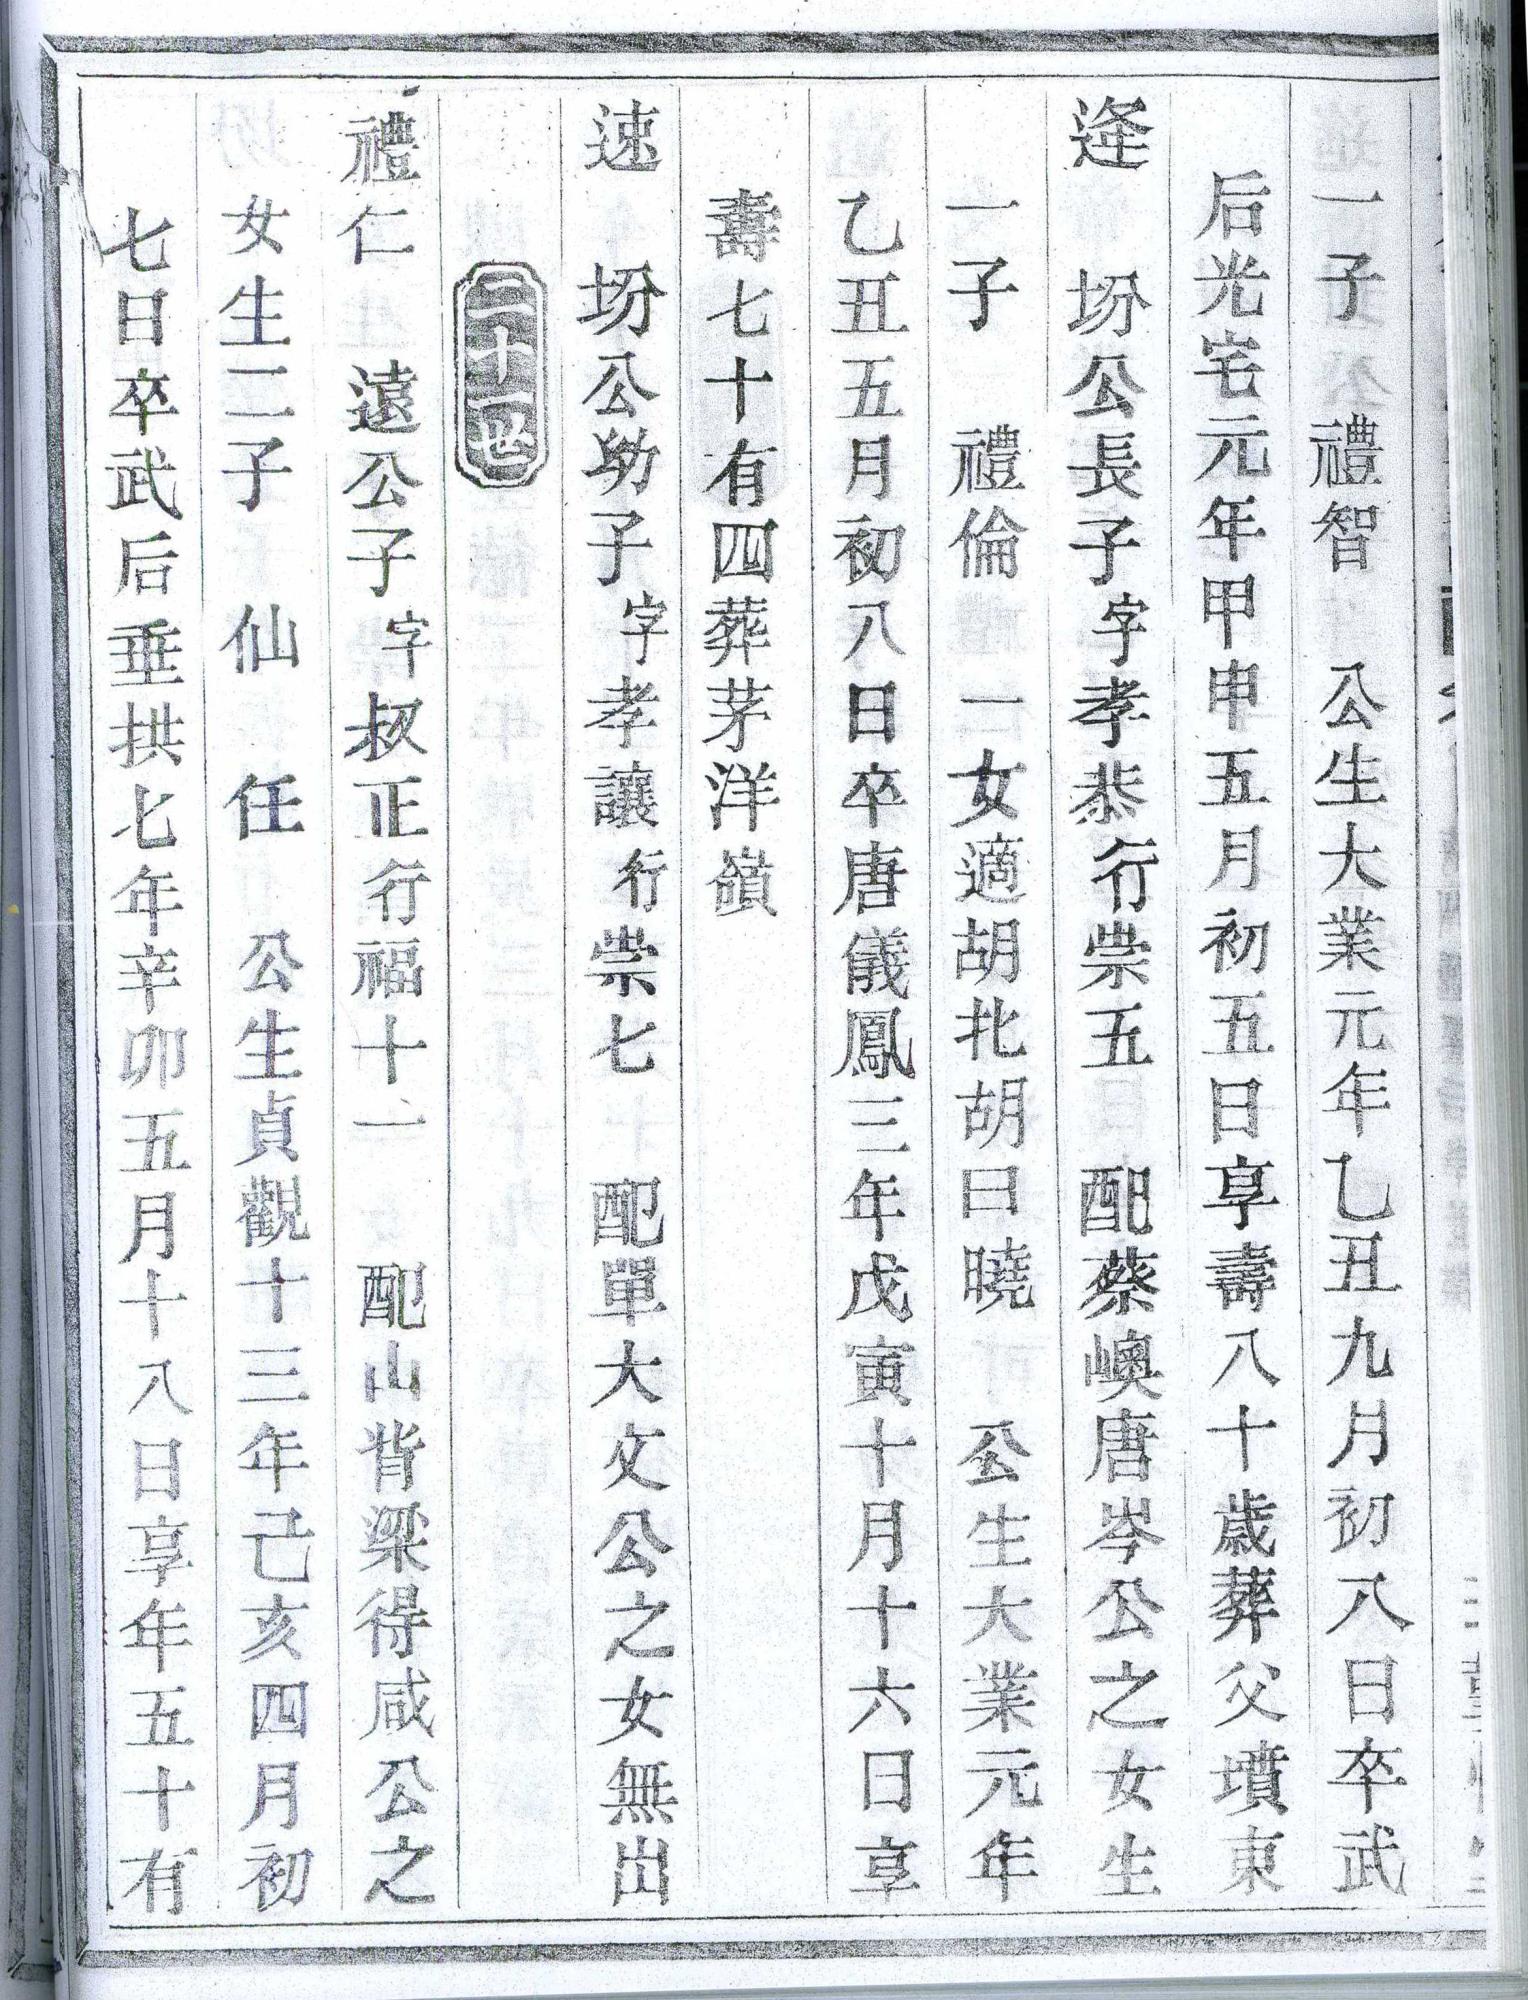 一子 禮智 公生大業元年乙丑九月初八日卒武
后光宅元年甲申五月初五日享壽八十歲葬父墳東
逄 坋公長子字孝恭行崇五 配蔡嶼唐岑公之女生
一子 禮倫 一女適胡北胡曰曉 公生大業元年
乙丑五月初八日卒唐儀鳳三年戊寅十月十六日享
壽七十有四葬茅洋嶺
速 坋公㓜子字孝讓行崇七 配單大文公之女無出
二十一世
禮仁 遠公子字叔正行福十一 配山背梁得咸公之
女生二子 仙 任 公生貞觀十三年己亥四月初
七日卒武后垂拱七年辛卯五月十八日享年五十有